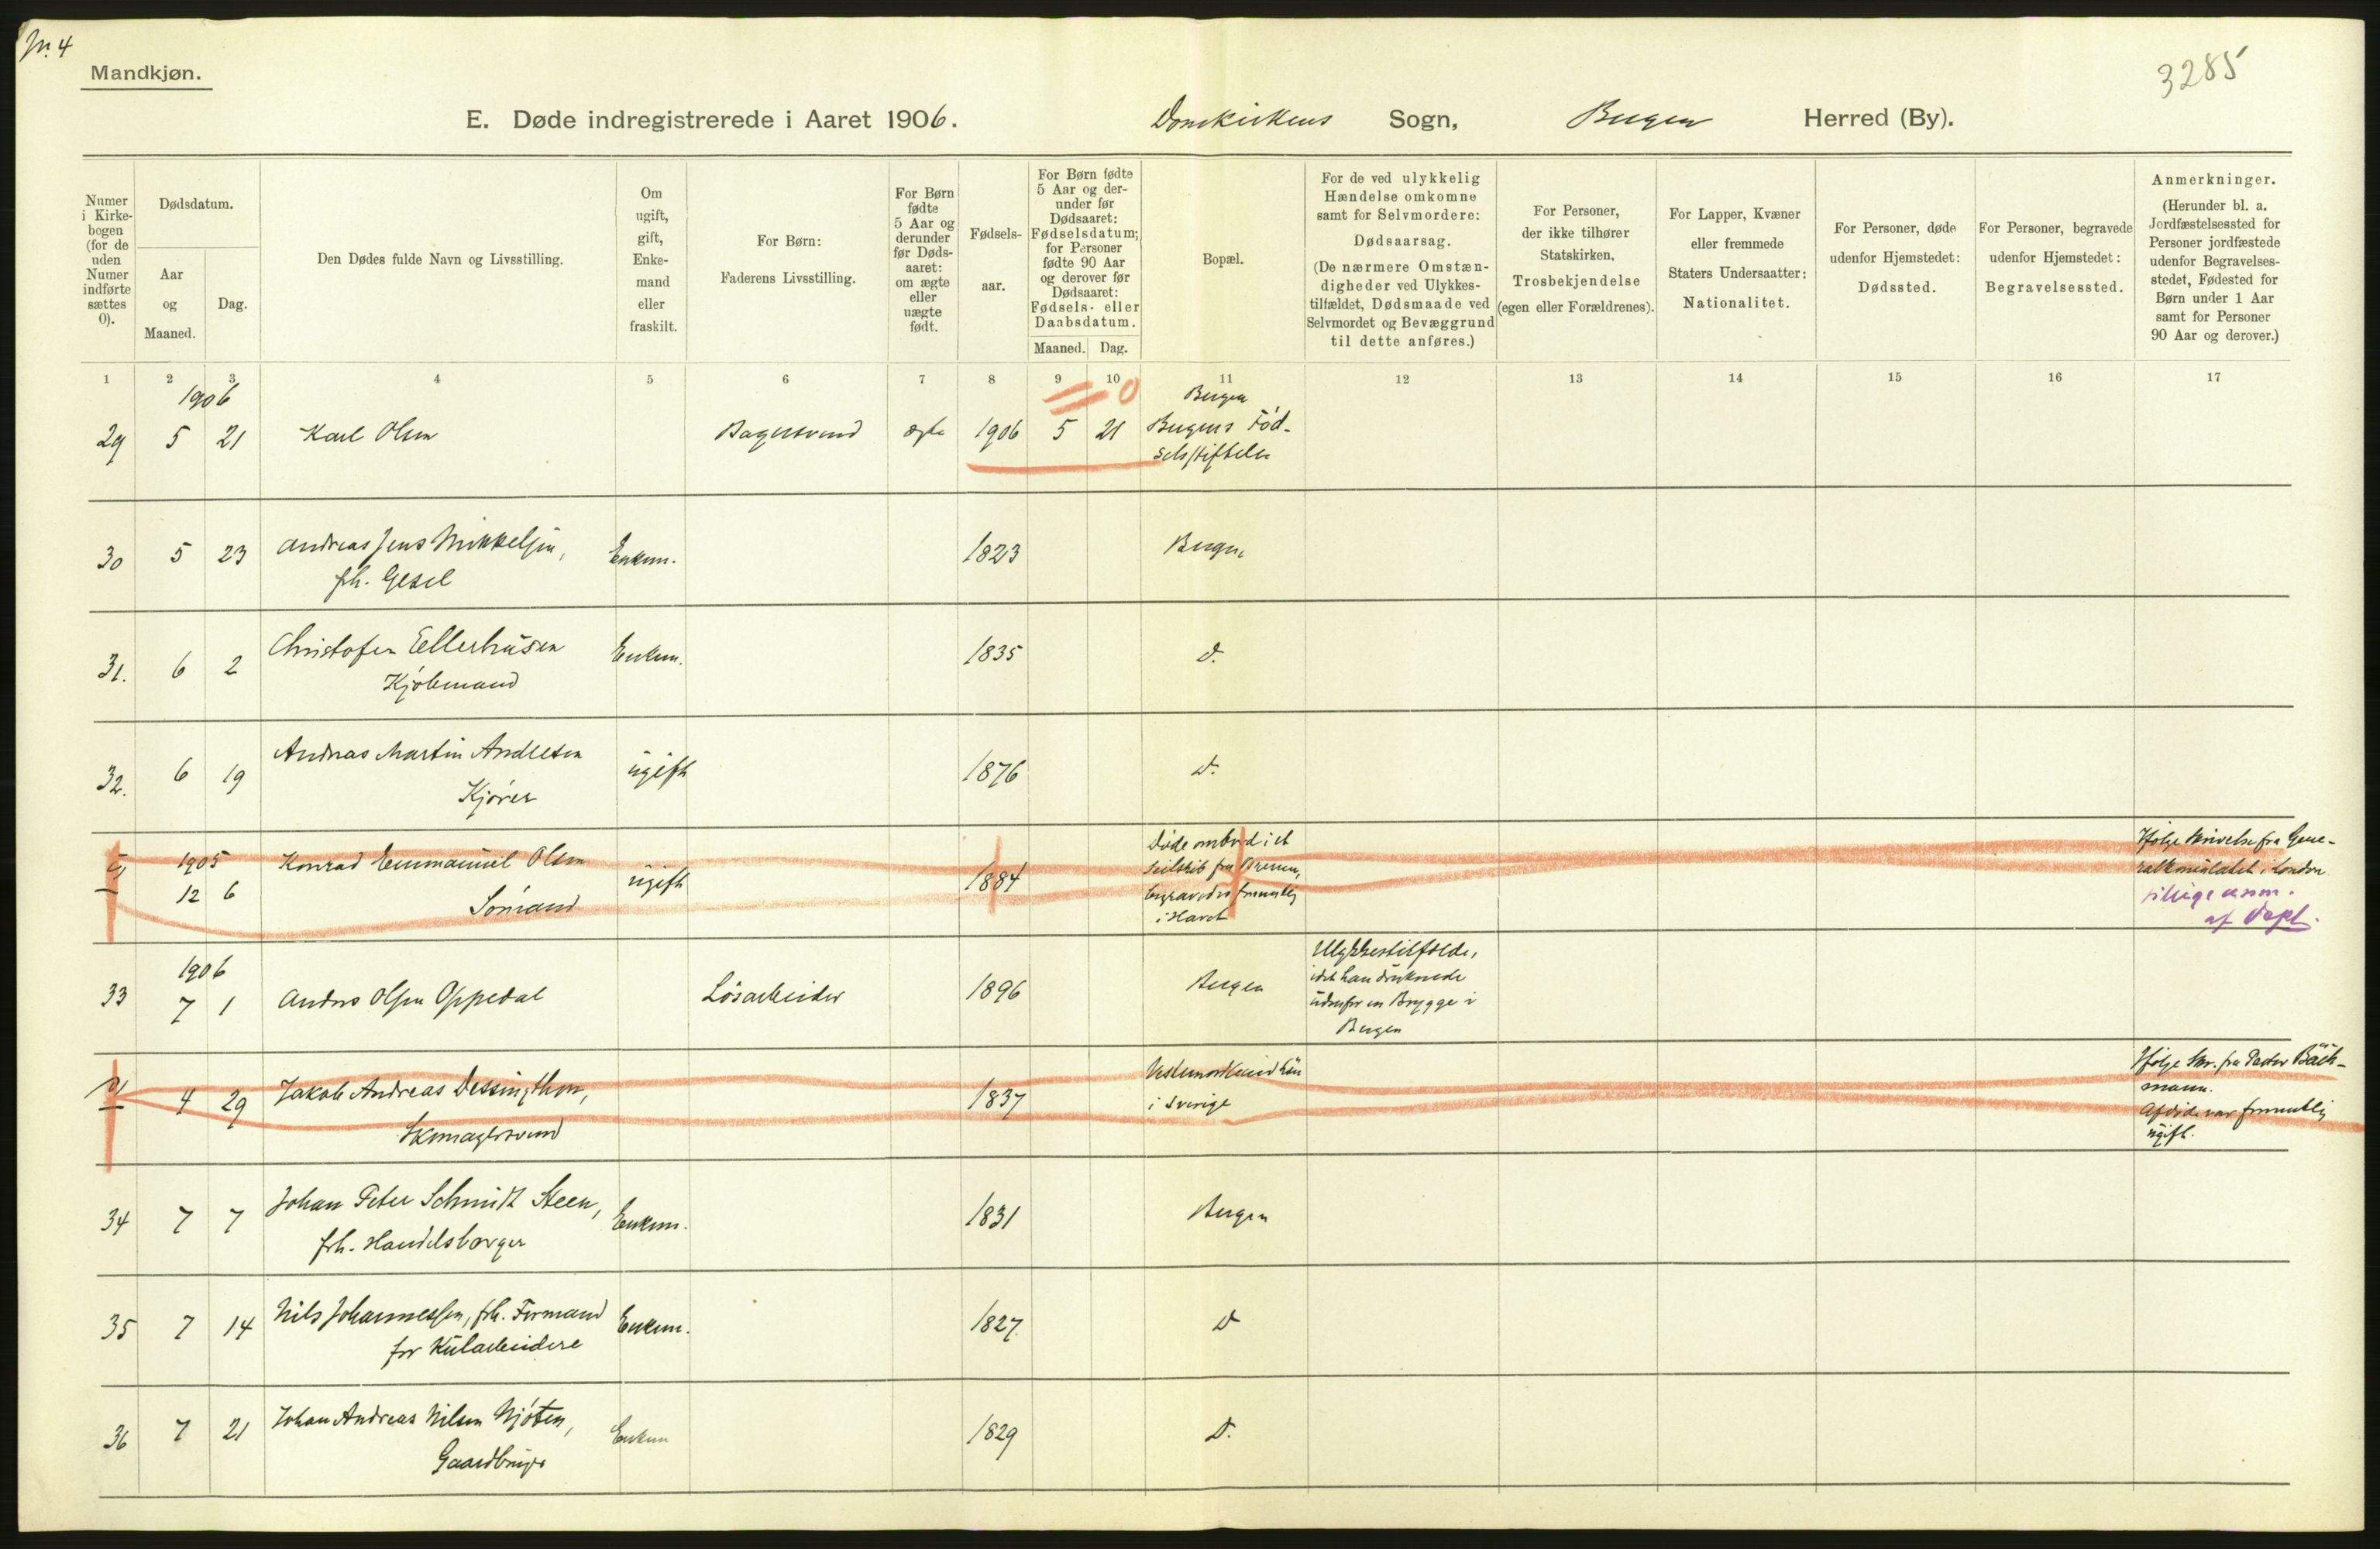 Nr. 4
3285
Mandkjøn.
E. Døde indregistrerede i Aaret 1906. Domkirkens Sogn, Bergen Herred (By).
Numer
i Kirke-
bogen
(for de
uden
Numer
indførte
sættes
0).
Dødsdatum.
Aar
og
Maaned.
Dag.
Den Dødes fulde Navn og Livsstilling.
Om
ugift,
gift,
Enke-
mand
eller
fraskilt.
For Børn:
Faderens Livsstilling.
For Børn
fødte
5 Aar og
derunder
før Døds-
aaret:
om ægte
eller
uægte
født.
Fødsels-
aar.
For Børn fødte
5 Aar og der-
under før
Dødsaaret:
Fødselsdatum;
for Personer
fødte 90 Aar
og derover før
Dødsaaret:
Fødsels- eller
Daabsdatum.
Maaned. Dag.
Bopæl.
For de ved ulykkelig
Hændelse omkomne
samt for Selvmordere:
Dødsaarsag.
(De nærmere Omstæn-
digheder ved Ulykkes-
tilfældet, Dødsmaade ved
Selvmordet og Bevæggrund
til dette anføres.)
For Personer,
der ikke tilhører
Statskirken,
Trosbekjendelse
(egen eller Forældrenes).
For Lapper, Kvæner
eller fremmede
Staters Undersaatter:
Nationalitet.
For Personer, døde
udenfor Hjemstedet:
Dødssted.
For Personer, begravede
udenfor Hjemstedet:
Begravelsessted.
Anmerkninger.
(Herunder bl. a.
Jordfæstelsessted for
Personer jordfæstede
udenfor Begravelses-
stedet, Fødested for
Børn under 1 Aar
samt for Personer
90 Aar og derover.)
1 2 3 4 5 6 7 8 9 10 11 12 13 14 15 16 17
1906 0 Bergen
29 5 21 Karl Olsen Bagersvend ægte 1906 5 21 Bergens Fød-
selsstiftelse
30 5 23 Andreas Jens Mikkelsen, Enkem. 1823 Bergen
fh. Gesel
31. 6 2 Christofer Ellerhusen Enkem. 1835 d.
Kjøbmand
32. 6 19 Andreas Martin Andersen ugift 1876 d.
Kjører
1905 12 6 Konrad Emmanuel Olsen ugift 1884 Døde ombord i et
Sømand
Seilskib fra Bremen,
begravedes formentlig
i Havet
Ifølge Skrivelse fra Gene-
ralkonsulatet i London
af Dept.
1906
33 7 1 Anders Olsen Oppedal Løsarbeider 1896 Bergen Ulykkestilfælde,
idet han druknede
udenfor en Brygge i
Bergen
4 29 Jakob Andreas Dessingthon, 1837
Skomagersvend
i Sverige
Ifølge Skr. fra Pastor Bäck-
mann.
Afdøde var formentlig
ugift.
34 7 7 Johan Peter Schmidt Steen, Enkem. 1831 Bergen
fh. Handelsborger
35 7 14 Nils Johannessen, fh. Formand Enkem. 1827 D
for Kularbeidere
36 7 21 Johan Andreas Nilsen Njøten, Enkem 1829 D.
Gaardbruger